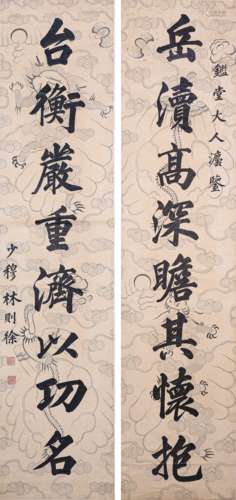 鑑堂大人灋鑒
岳瀆髙深瞻其懷抱
台衡嚴重濟以功名
少穆林則徐